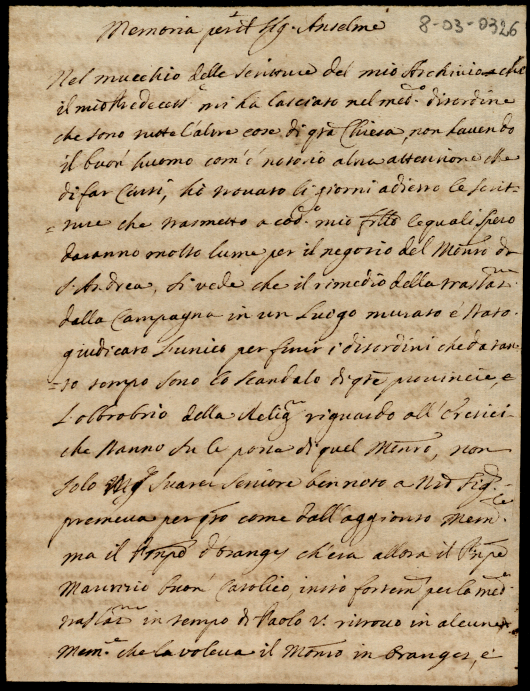 8-03-0326
Memoria per il Sig. Anselmi
Nel mucchio delle scritture del mio Archivio che
il mio Predecess.re mi ha lasciato nel med.o disordine
che sono tutte l'altre cose di q.ta Chiesa, non havendo
il buon huomo com'è notorio alcuna attenzione che
di far, hò trovato li giorni adietro le scrit-
=ture che trasmetto a cod.o mio le quali spero
daranno molto lume per il negozio del Mon.ro di
S. Andrea, si vede che il rimedio della traslaz.ne
dalla Campagna in un Luogo murato è stato
giudicato l'unico per finir i disordini che da tan-
=to tempo sono lo scandalo di q.te provincie, e
l'obbrobrio della Relig.e riguardo all'Eretici
che stanno su le porte di quel Mon.ro, non
solo Mg.r Suarez seniore ben noto a
premeva per q.to come dall'aggiunto Mem.le
ma il Prnpe d'Oranges ch'era allora il Prnpe
Maurizio buon Catolico instò fortem.e per la med.a
traslaz.ne in tempo di Paolo V. ritrovo in alcune
Mem.e che la voleva il Mon.ro in Oranges, e